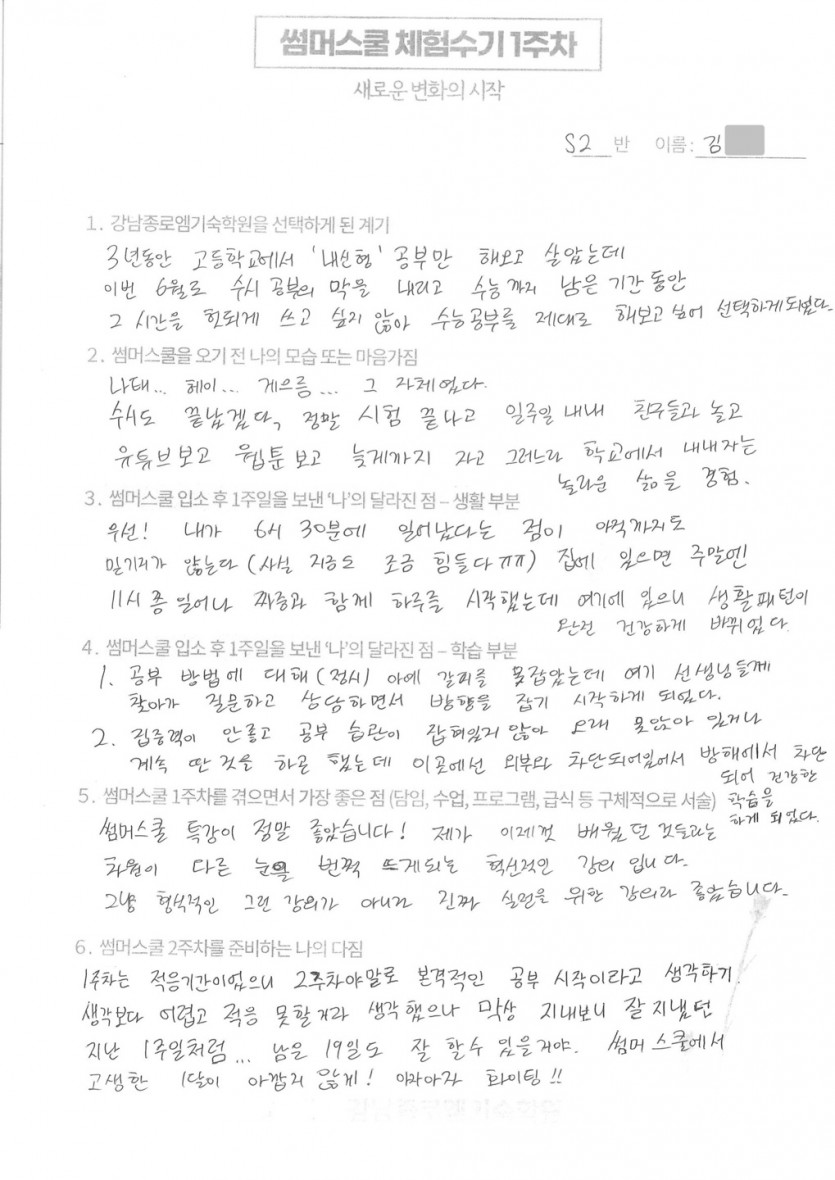 썸머스쿨 체험수기 1주차
새로운 변화의 시작
S2 반 이름: 김
1. 강남종로엠기숙학원을 선택하게 된 계기
3년동안 고등학교에서 '내신형' 공부만 해오고 살았는데
이번 6월로 수시 공부의 막을 내리고 수능까지 남은 기간동안
그 시간을 헛되게 쓰고 싶지 않아 수능공부를 제대로 해보고 싶어 선택하게되었다.
2. 썸머스쿨을 오기 전 나의 모습 또는 마음가짐
나태... 헤이... 게으름... 그 자체였다.
수시도 끝났겠다, 정말 시험 끝나고 일주일 내내 친구들과 놀고
유튜브보고 웹툰보고 늦게까지 자고 그러느라 학교에서 내내자는
놀라운 삶을 경험.
3. 썸머스쿨 입소 후 1주일을 보낸 '나'의 달라진 점 – 생활 부분
우선! 내가 6시 30분에 일어났다는 점이 아직까지도
믿기지가 않는다 (사실 지금도 조금 힘들다ㅠㅠ) 집에 있으면 주말엔
11시쯤 일어나 짜증과 함께 하루를 시작했는데 여기에 있으니 생활패턴이
완전 건강하게 바뀌었다.
4. 썸머스쿨 입소 후 1주일을 보낸 '나'의 달라진 점 – 학습 부분
1. 공부 방법에 대해(정시) 아예 갈피를 못잡았는데 여기 선생님들께
찾아가 질문하고 상담하면서 방향을 잡기 시작하게 되었다.
2. 집중력이 안좋고 공부 습관이 잡혀있지 않아 오래 못앉아 있거나
계속 딴 것을 하곤 했는데 이곳에선 외부와 차단되어있어서 방해에서 차단
되어 건강한
학습을
하게 되었다.
5. 썸머스쿨 1주차를 겪으면서 가장 좋은 점 (담임, 수업, 프로그램, 급식 등 구체적으로 서술)
썸머스쿨 특강이 정말 좋았습니다! 제가 이제껏 배웠던 것들과는
차원이 다른 눈을 번쩍 뜨게되는 혁신적인 강의 입니다.
그냥 형식적인 그런 강의가 아니라 진짜 실전을 위한 강의라 좋았습니다.
6. 썸머스쿨 2주차를 준비하는 나의 다짐
1주차는 적응기간이었으니 2주차야말로 본격적인 공부 시작이라고 생각하기.
생각보다 어렵고 적응 못할거라 생각했으나 막상 지내보니 잘지냈던
지난 1주일처럼... 남은 19일도 잘 할수 있을거야. 썸머스쿨에서
고생한 1달이 아깝지 않게! 아자아자 화이팅!!